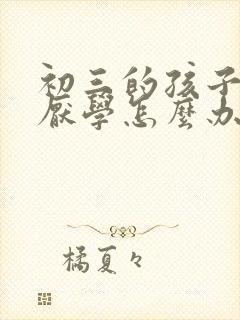 初三的孩子
厭學怎麼办
橘夏々